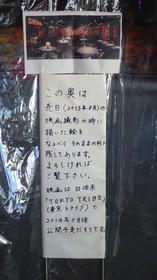 この奥は
先日(2013年8月)の
映画撮影の時に
描いた絵を
なるべく そのままの形で
残してあります。
よろしければ
ご覧下さい。
映画は 日活系
「TOKYO TRIBE」
(東京トライブ)で、
2014年
公開予定だそうです。